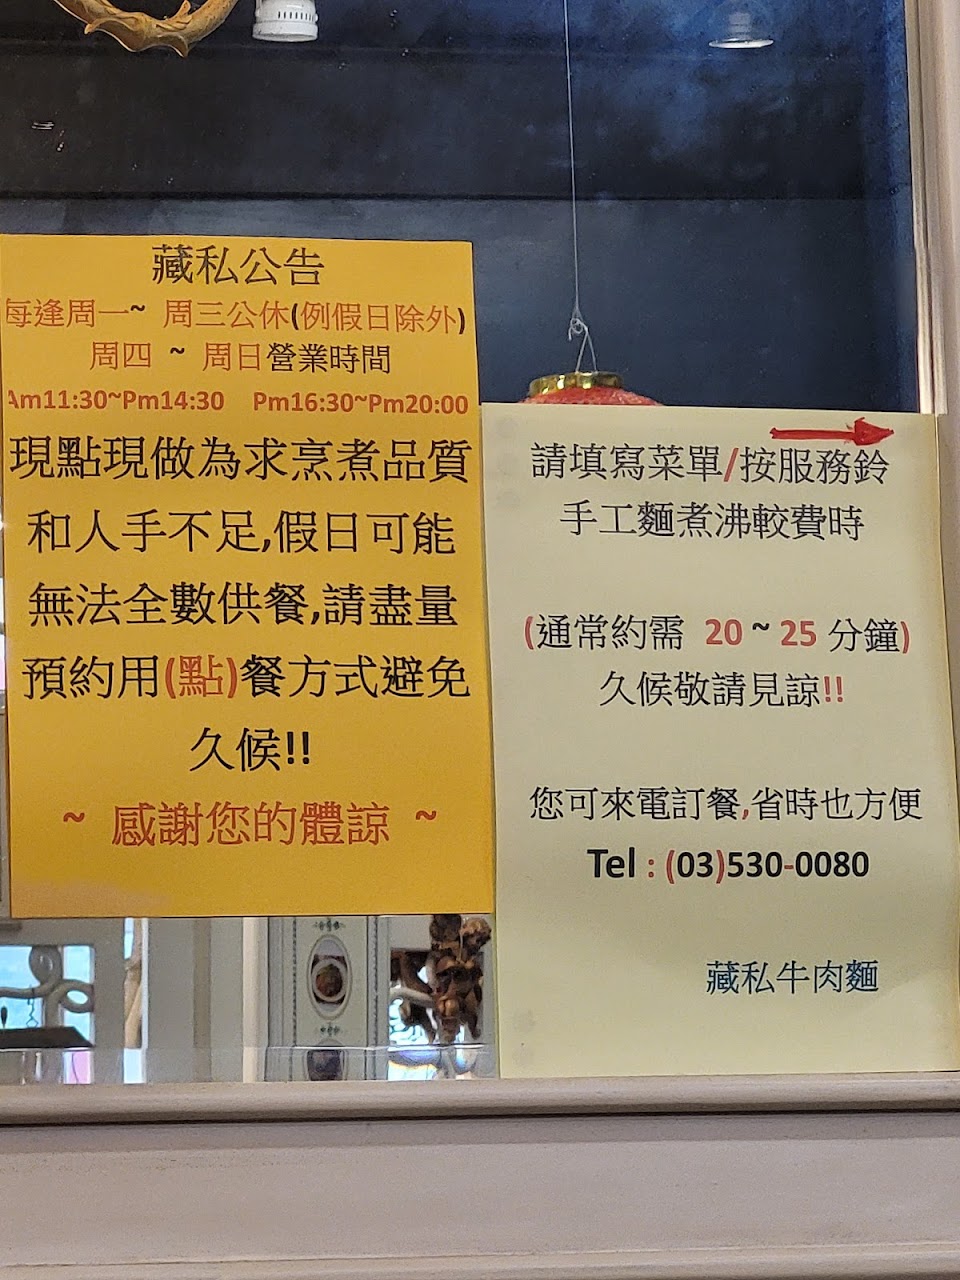 藏私公告
每逢周一~ 周三公休(例假日除外)
周四 ~ 周日營業時間
Am11:30~Pm14:30 Pm16:30~Pm20:00
現點現做為求烹煮品質
和人手不足,假日可能
無法全數供餐,請盡量
預約用(點)餐方式避免
久候!!
~ 感謝您的體諒 ~
請填寫菜單/按服務鈴
手工麵煮沸較費時
(通常約需 20 ~ 25 分鐘)
久候敬請見諒!!
您可來電訂餐,省時也方便
Tel : (03)530-0080
藏私牛肉麵